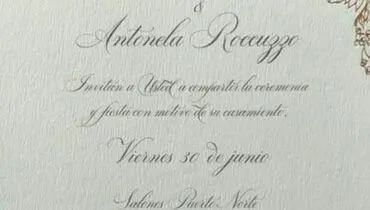 &
Antónela Roccuzzo
Invitan a Usted a compartir la ceremonia
y fiesta con motivo de su casamiento.
Viernes 30 de junio
Salones Puerto Norte